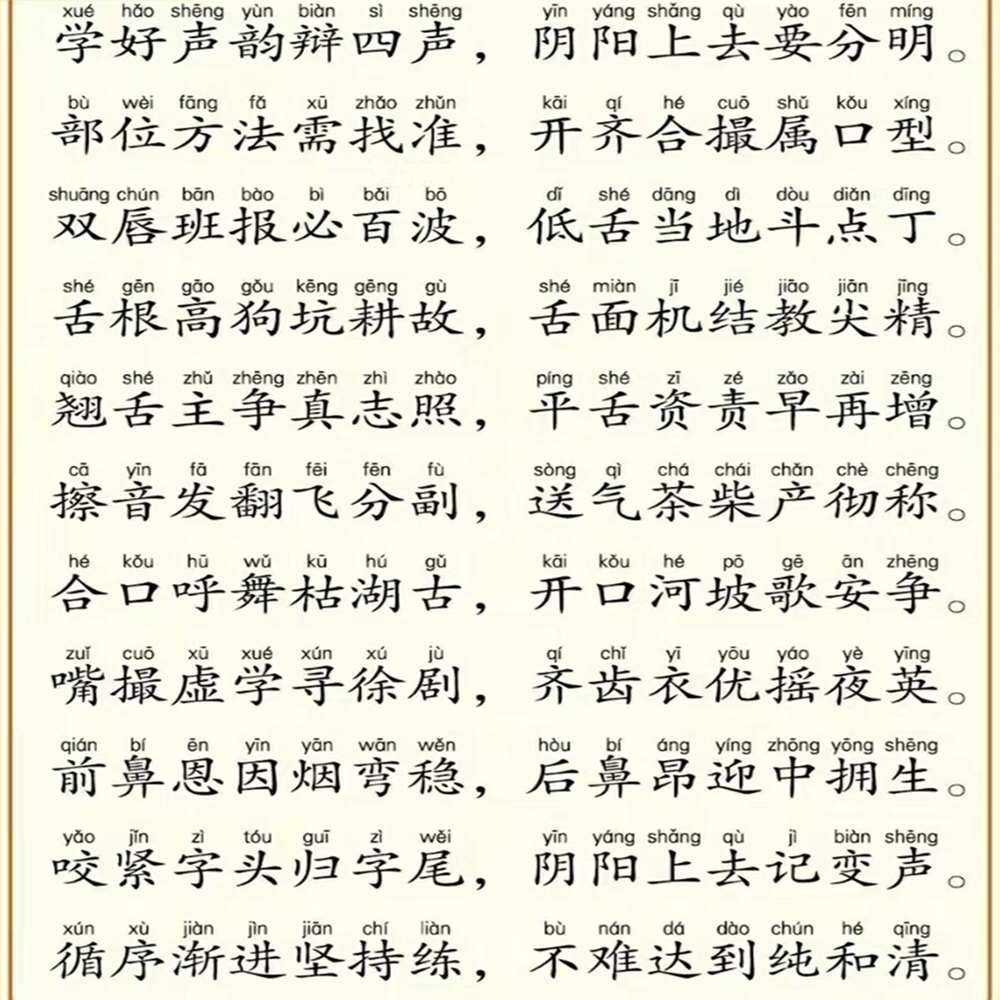 xué hǎo shēng yùn biàn sì shēng yīn yáng shǎng qù yào fēn míng
学好声韵辩四声，阴阳上去要分明。
bù wèi fāng fǎ xū zhǎo zhǔn kāi qí hé cuō shǔ kǒu xíng
部位方法需找准，开齐合撮属口型。
shuāng chún bān bào bì bǎi bō dī shé dāng dì dòu diǎn dīng
双唇班报必百波，低舌当地斗点丁。
shé gēn gāo gǒu kēng gēng gù shé miàn jī jié jiāo jiān jīng
舌根高狗坑耕故，舌面机结教尖精。
qiào shé zhǔ zhēng zhēn zhì zhào píng shé zī zé zǎo zài zēng
翘舌主争真志照，平舌资责早再增。
cā yīn fā fān fēi fēn fù sòng qì chá chái chǎn chè chēng
擦音发翻飞分副，送气茶柴产彻称。
hé kǒu hū wǔ kū hú gǔ kāi kǒu hé pō gē ān zhēng
合口呼舞枯湖古，开口河坡歌安争。
zuǐ cuō xū xué xún xú jù qí chǐ yī yōu yáo yè yīng
嘴撮虚学寻徐剧，齐齿衣优摇夜英。
qián bí ēn yīn yān wān wěn hòu bí áng yíng zhōng yōng shēng
前鼻恩因烟弯稳，后鼻昂迎中拥生。
yǎo jǐn zì tóu guī zì wěi yīn yáng shǎng qù jì biàn shēng
咬紧字头归字尾，阴阳上去记变声。
xún xù jiàn jìn jiān chí liàn bù nán dá dào chún hé qīng
循序渐进坚持练，不难达到纯和清。